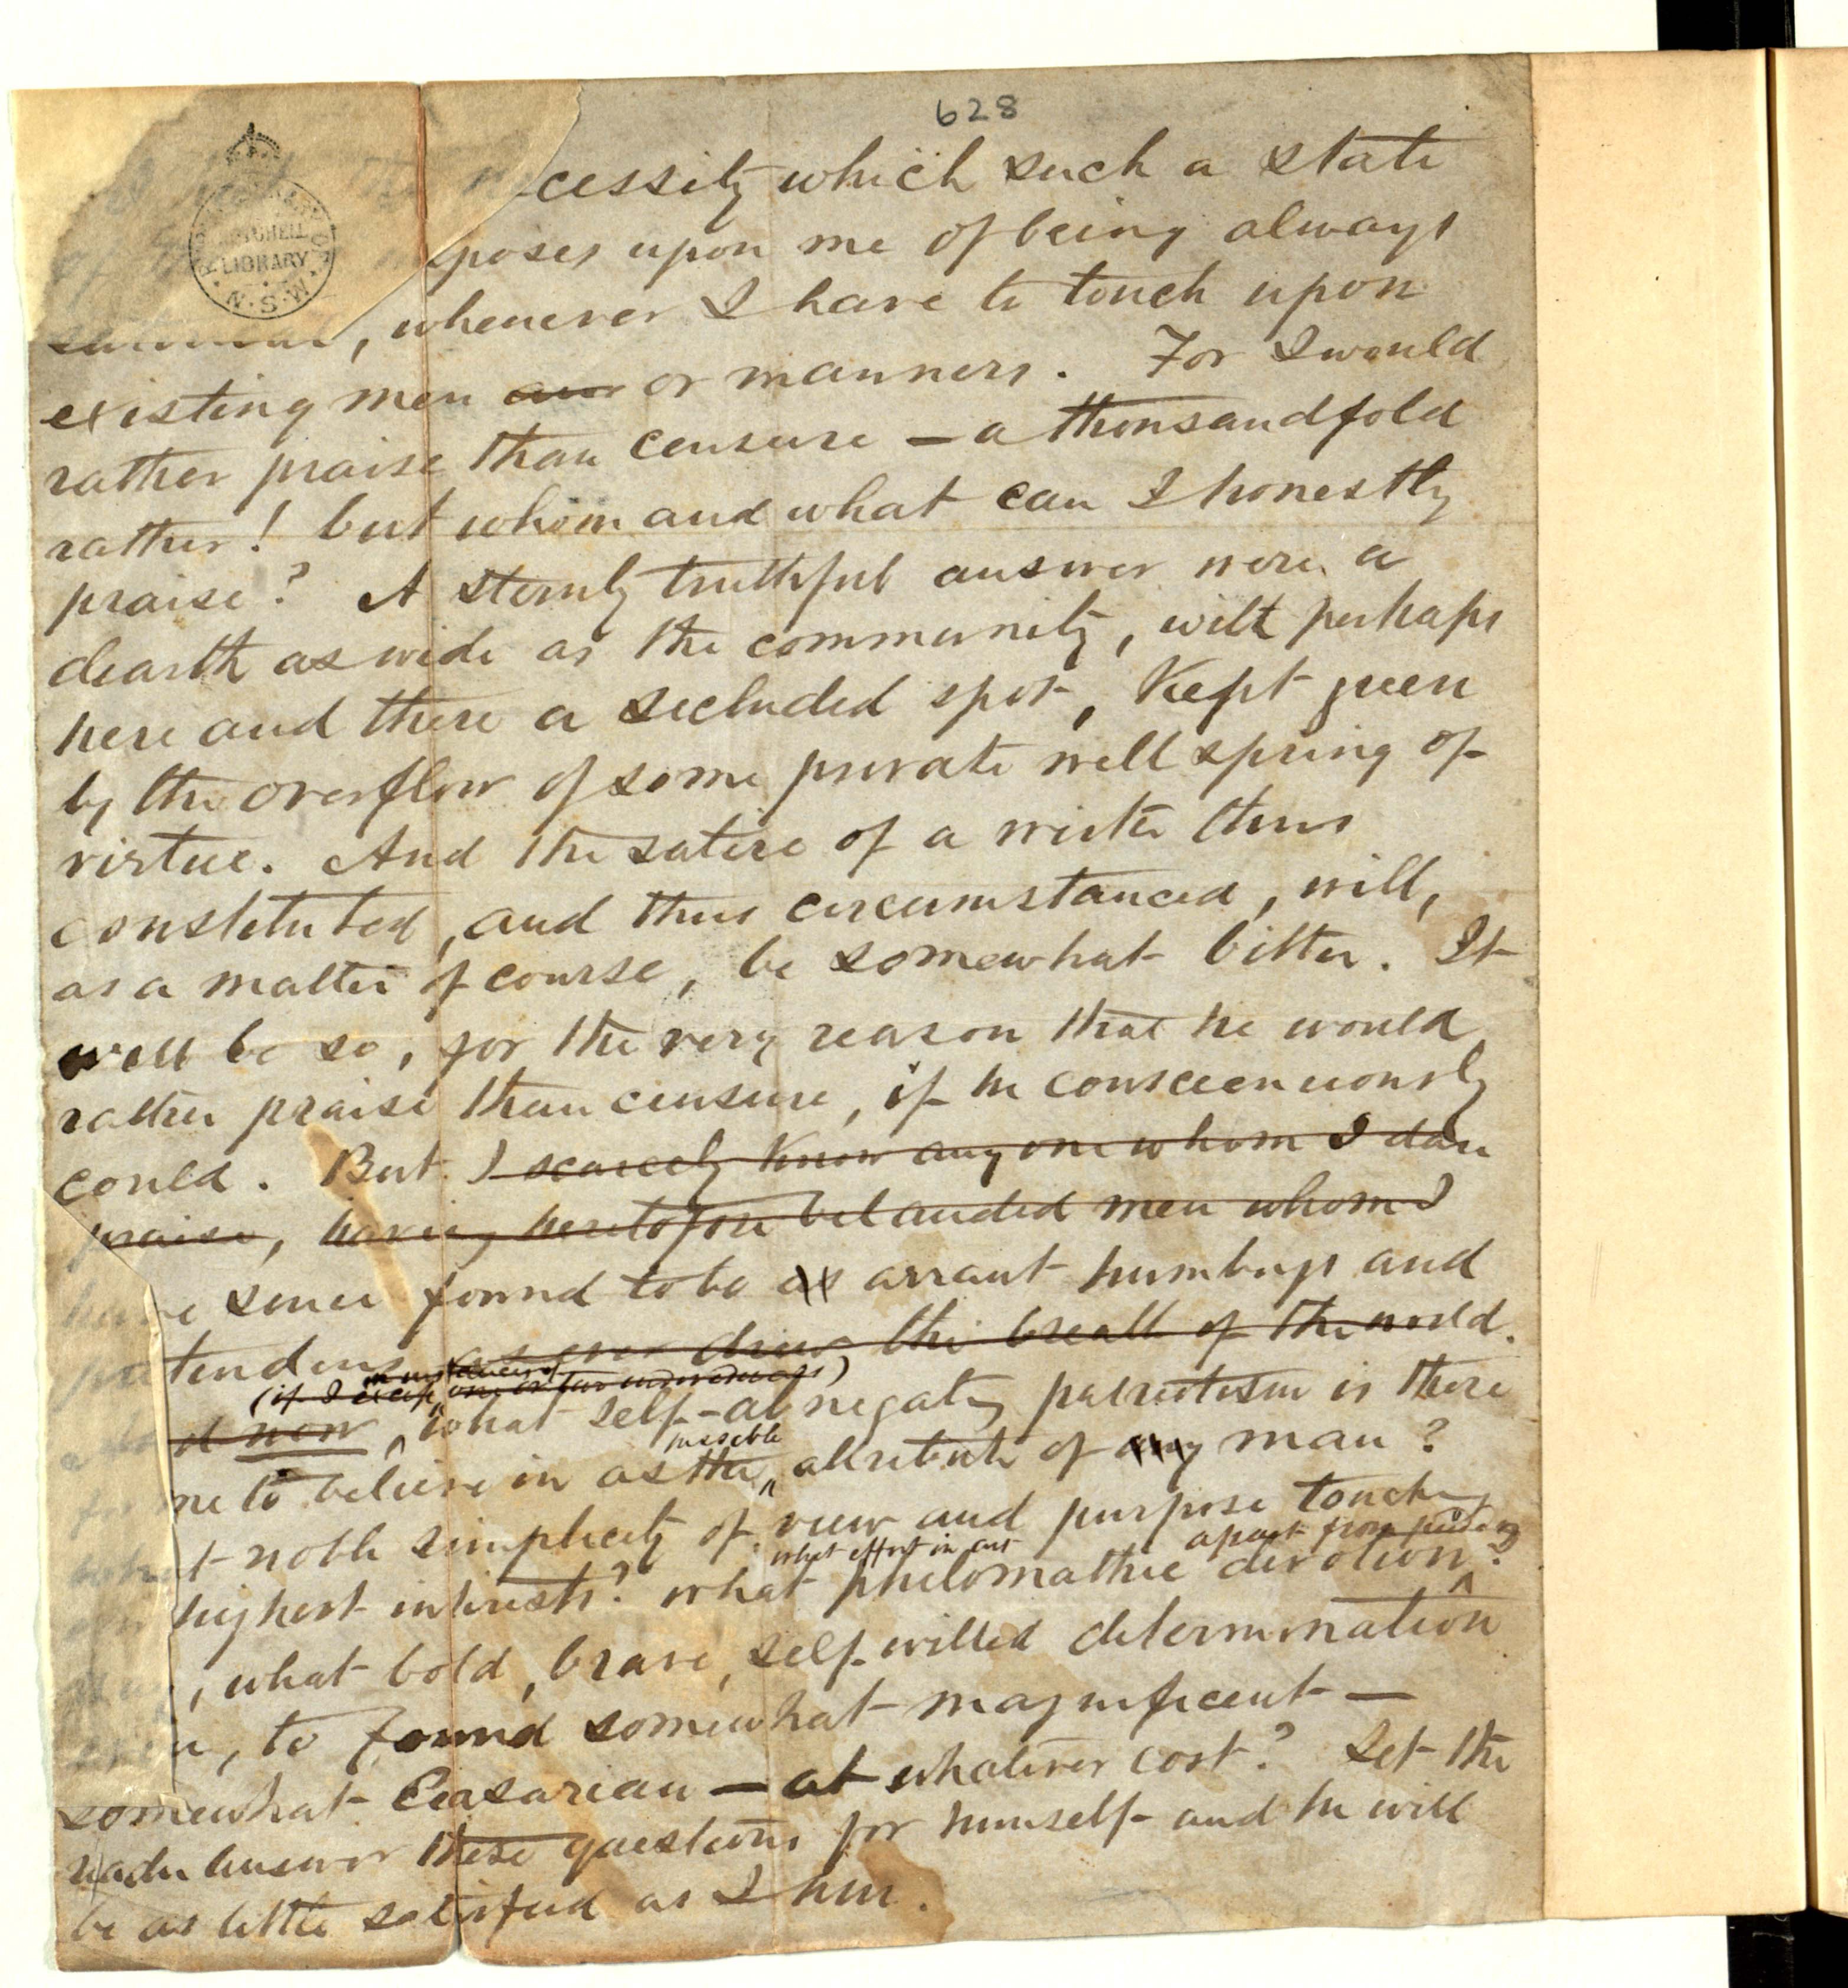 628
cessity which such a state
poses upon me of being always
, whenever I have to touch upon
existing men or manners. For I would
rather praise than censure — a thousandfold
rather! but whom and what can I honestly
praise? A sternly truthful answer were a
dearth as wide as the community, with perhaps
here and there a secluded spot, kept green
by the overflow of some private well spring of
virtue. And the satire of a writer thus
constituted, and thus circumstanced, will,
as a matter of course, be somewhat bitter. It
will be so, for the very reason that he would
rather praise than censure, if he conscientiously
could. But I scarcely know any one whom I dare
praise, having heretofore belauded men whom I
since found to be as arrant humbugs and
as ever drew the breath of the world.
(if I except one or two individuals)
now, what self-abnegating patriotism is there
possible
me to believe in as the attribute of any man?
noble simplicity of view and purpose touching
what effort in art apart from
highest interests? what philomathic devotion?
, what bold, brave, self-willed determination
, to found somewhat magnificent —
somewhat Ceasarian — at whatever cost? Let the
reader answer these questions for himself and he will
be as little satisfied as I am.
MITCHELL
LIBRARY
N.S.W.